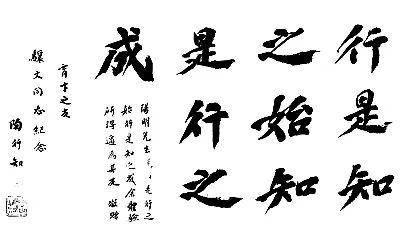 行是知
之始知
是行之
成
陽明先生 是行之
始行是知之成余體驗
所得適為其反
育才之友
文同志紀念
陶行知